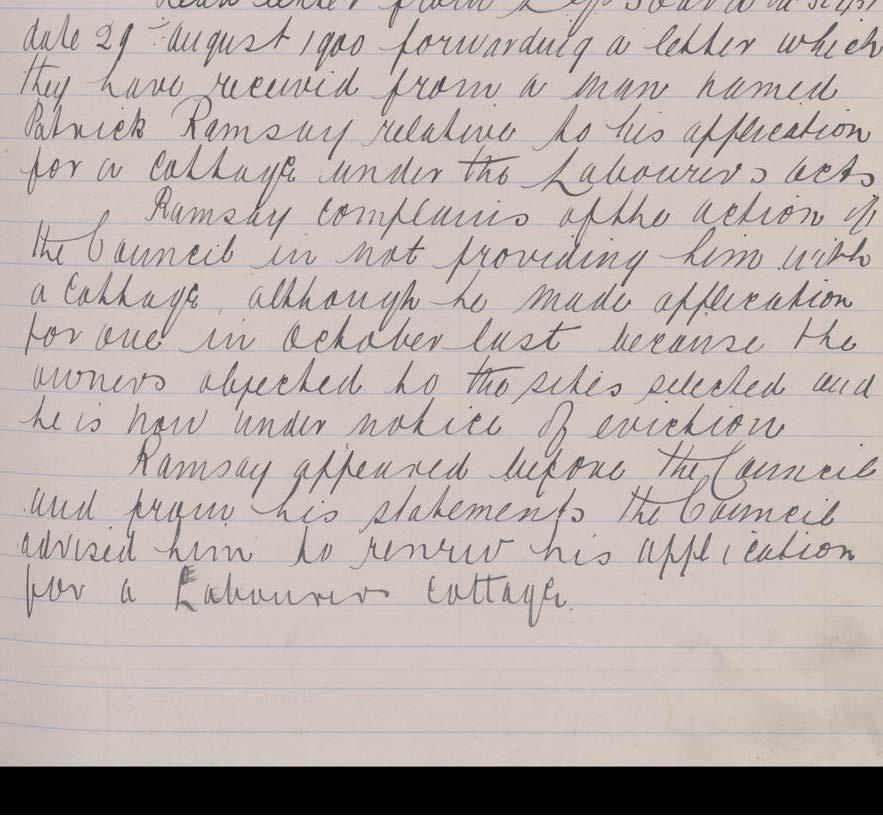 Read letter from L.G. Board
date 29th August 1900 forwarding a letter which
they have received from a man named
Patrick Ramsay relative to his application
for a cottage under the Labourers acts
Ramsay complains of the action of
the Council in not providing him with
a Cottage, although he made application
for one in October last because the
owners objected to the sites selected and
he is now under notice of eviction
Ramsay appeared before the Council
and from his statements the Council
advised him to renew his application
for a Labourers cottage.